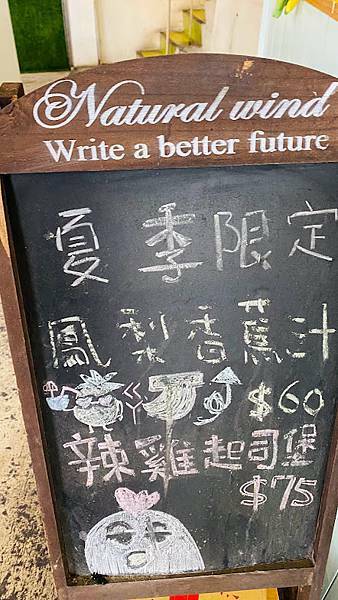 Natural wind
Write a better future
夏季限定
鳳梨香蕉汁
$60
辣雞起司堡
$75